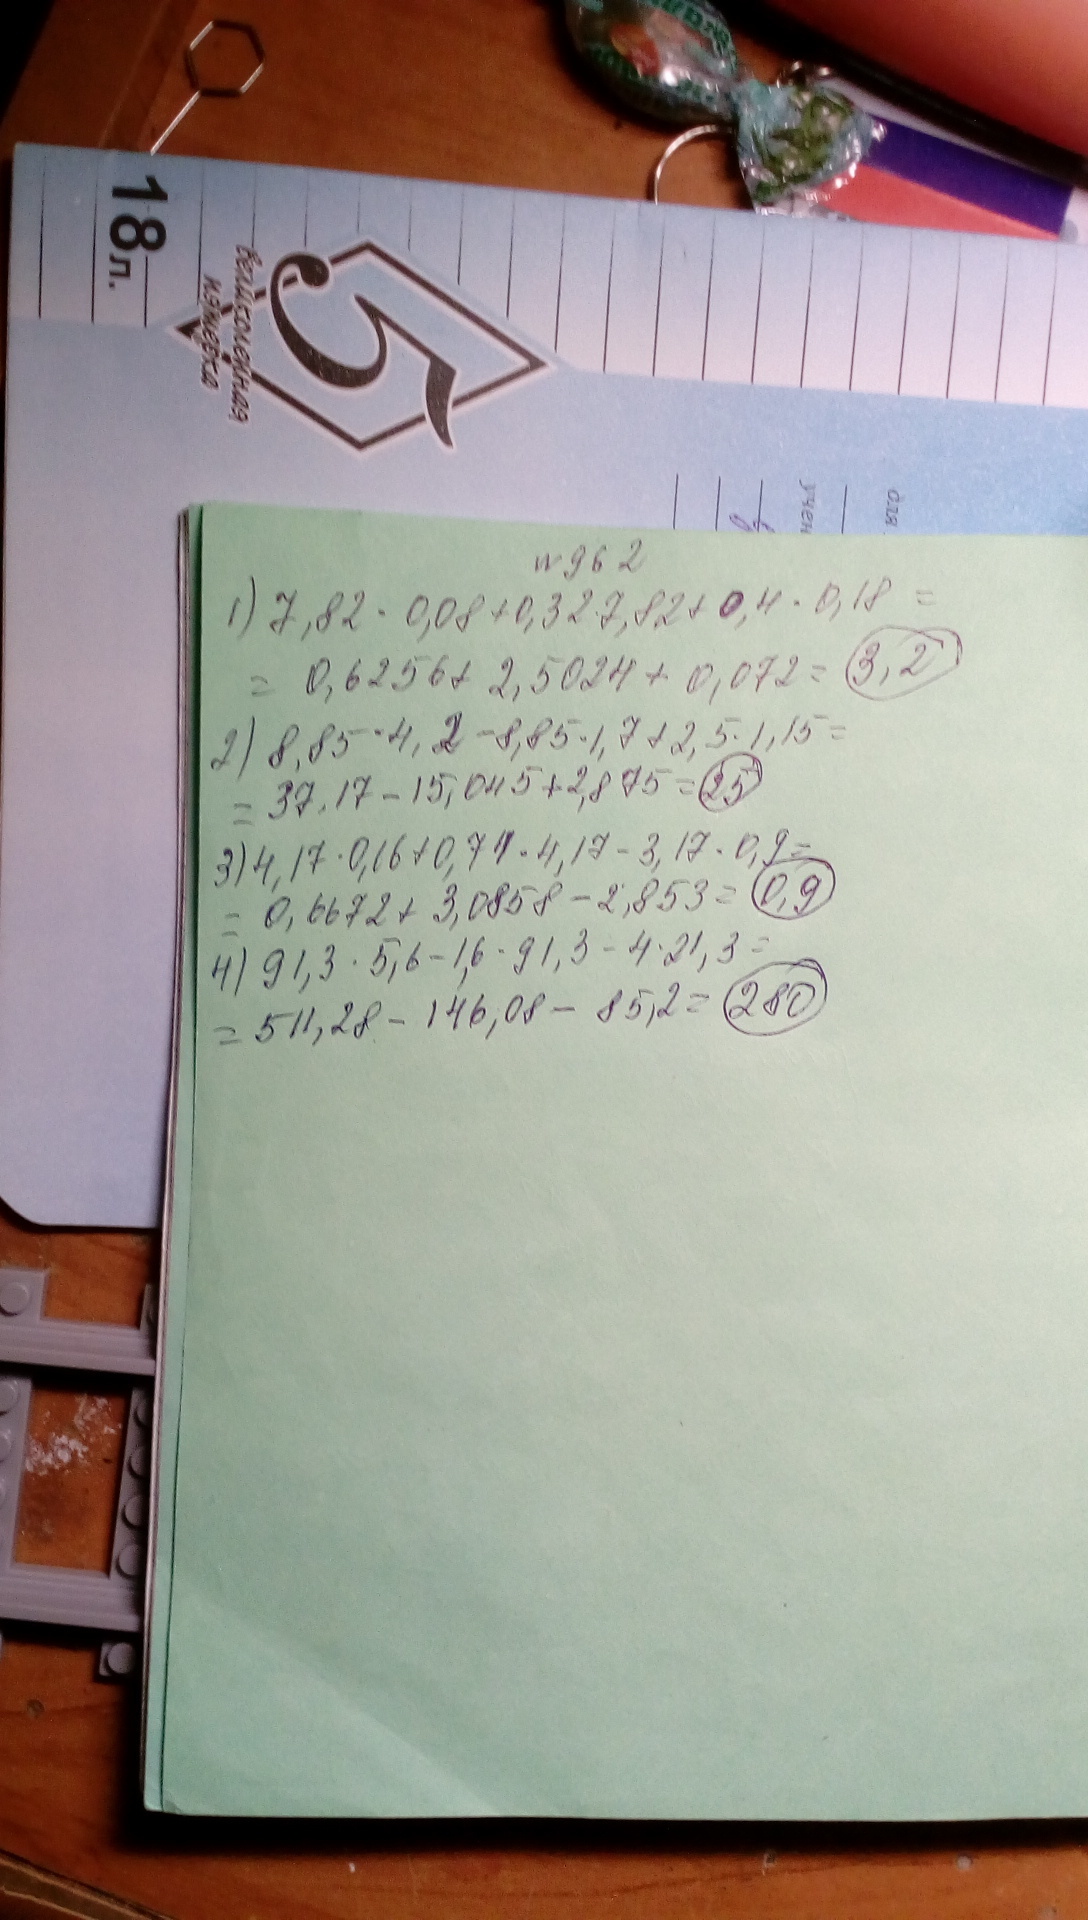 18 л.
Великолепная
пятёрка
5
для
учен
№962
1) 7,82 · 0,08+0,32·7,82+0,4 · 0,18 =
= 0,6256+ 2,5024 + 0,072= 3,2
2) 8,85 · 4,2 - 8,85·1,7+2,5·1,15=
= 37,17 - 15,045+2,875=25
3) 4,17 · 0,16+0,74 · 4,17 - 3,17 · 0,9=
= 0,6672+ 3,0858 - 2,853= 0,9
4) 91,3 · 5,6 - 1,6 · 91,3 - 4·21,3=
= 511,28 - 146,08 - 85,2= 280